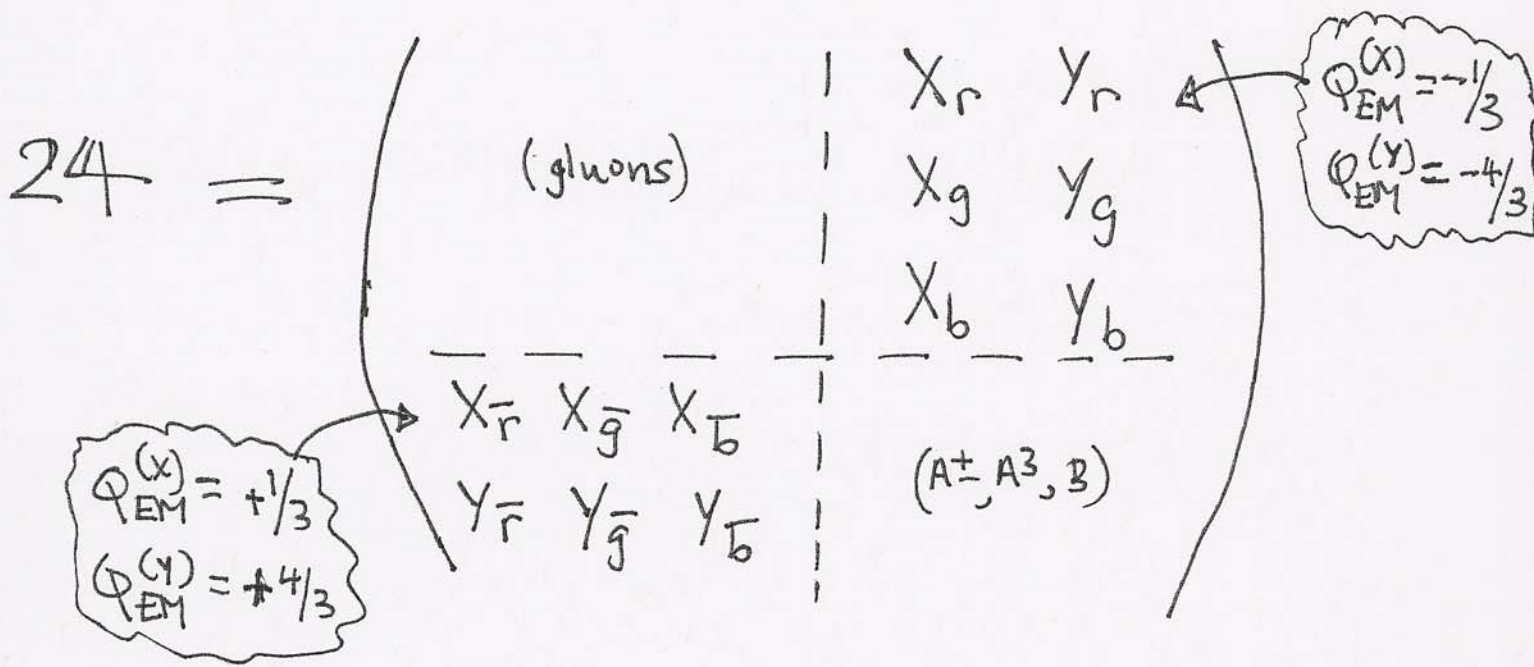 24 =
(gluons)
X_r Y_r
X_g Y_g
X_b Y_b
X_r̄ X_ḡ X_b̄
Y_r̄ Y_ḡ Y_b̄
(A^±, A^3, B)
Q_EM^(X) = -1/3
Q_EM^(Y) = -4/3
Q_EM^(X) = +1/3
Q_EM^(Y) = +4/3